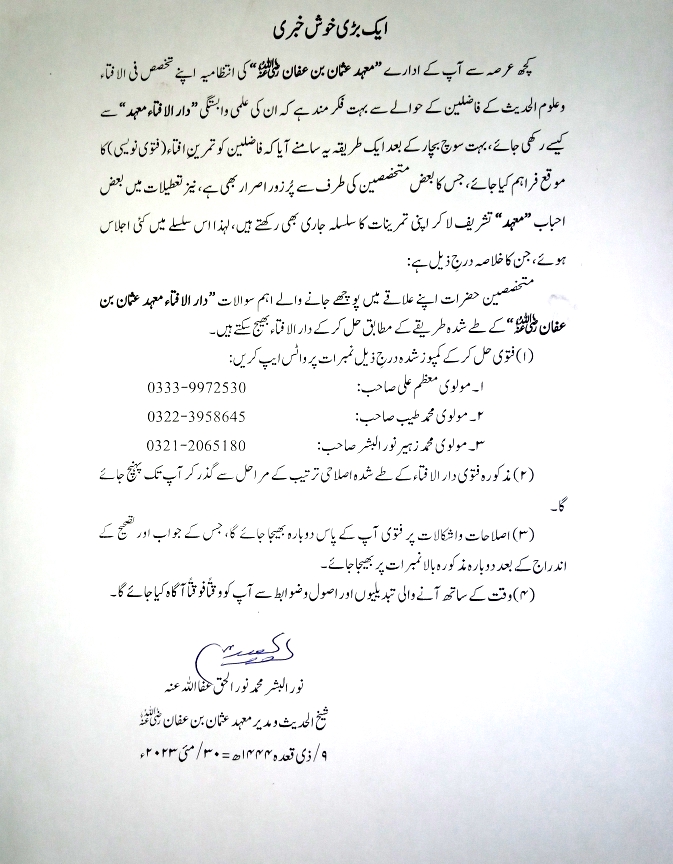 ایک بڑی خوش خبری
کچھ عرصہ سے آپ کے ادارے ”معہد عثمان بن عفان رضی اللہ عنہ“ کی انتظامیہ اپنے تخصص فی الافتاء
وعلوم الحدیث کے فاضلین کے حوالے سے بہت فکر مند ہے کہ ان کی علمی وابستگی ”دار الافتاء معہد“ سے
کیسے رکھی جائے، بہت سوچ بچار کے بعد ایک طریقہ یہ سامنے آیا کہ فاضلین کو تمرینِ افتاء (فتویٰ نویسی) کا
موقع فراہم کیا جائے، جس کا بعض متخصصین کی طرف سے پُر زور اصرار بھی ہے، نیز تعطیلات میں بعض
احباب ”معہد“ تشریف لا کر اپنی تمرینات کا سلسلہ جاری بھی رکھتے ہیں، لہٰذا اس سلسلے میں کئی اجلاس
ہوئے، جن کا خلاصہ درجِ ذیل ہے:
متخصصین حضرات اپنے علاقے میں پوچھے جانے والے اہم سوالات ”دار الافتاء معہد عثمان بن
عفان رضی اللہ عنہ“ کے طے شدہ طریقے کے مطابق حل کر کے دار الافتاء بھیج سکتے ہیں۔
(۱) فتویٰ حل کر کے کمپوز شدہ درجِ ذیل نمبرات پر واٹس ایپ کریں:
۱۔ مولوی معظم علی صاحب: 0333-9972530
۲۔ مولوی محمد طیب صاحب: 0322-3958645
۳۔ مولوی محمد زہیر نور البشر صاحب: 0321-2065180
(۲) مذکورہ فتویٰ دار الافتاء کے طے شدہ اصلاحی ترتیب کے مراحل سے گذر کر آپ تک پہنچ جائے
گا۔
(۳) اصلاحات واشکالات پر فتویٰ آپ کے پاس دوبارہ بھیجا جائے گا، جس کے جواب اور تصحیح کے
اندراج کے بعد دوبارہ مذکورہ بالا نمبرات پر بھیجا جائے۔
(۴) وقت کے ساتھ آنے والی تبدیلیوں اور اصول وضوابط سے آپ کو وقتاً فوقتاً آگاہ کیا جائے گا۔
نور البشر محمد نور الحق عفا اللہ عنہ
شیخ الحدیث ومدیر معہد عثمان بن عفان رضی اللہ عنہ
۹/ ذی قعدہ ۱۴۴۴ھ = ۳۰/ مئی ۲۰۲۳ء